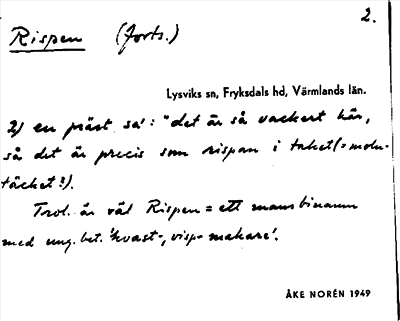 2.
Rispen (forts.)
Lysviks sn, Fryksdals hd, Värmlands län.
2) en präst sa': "det är så vackert här,
så det är precis som rispan i taket (= moln-
täcket?).
Trol. är väl Rispen = ett mansbinamn
med ung. bet. 'kvast-, visp- makare'.
ÅKE NORÉN 1949